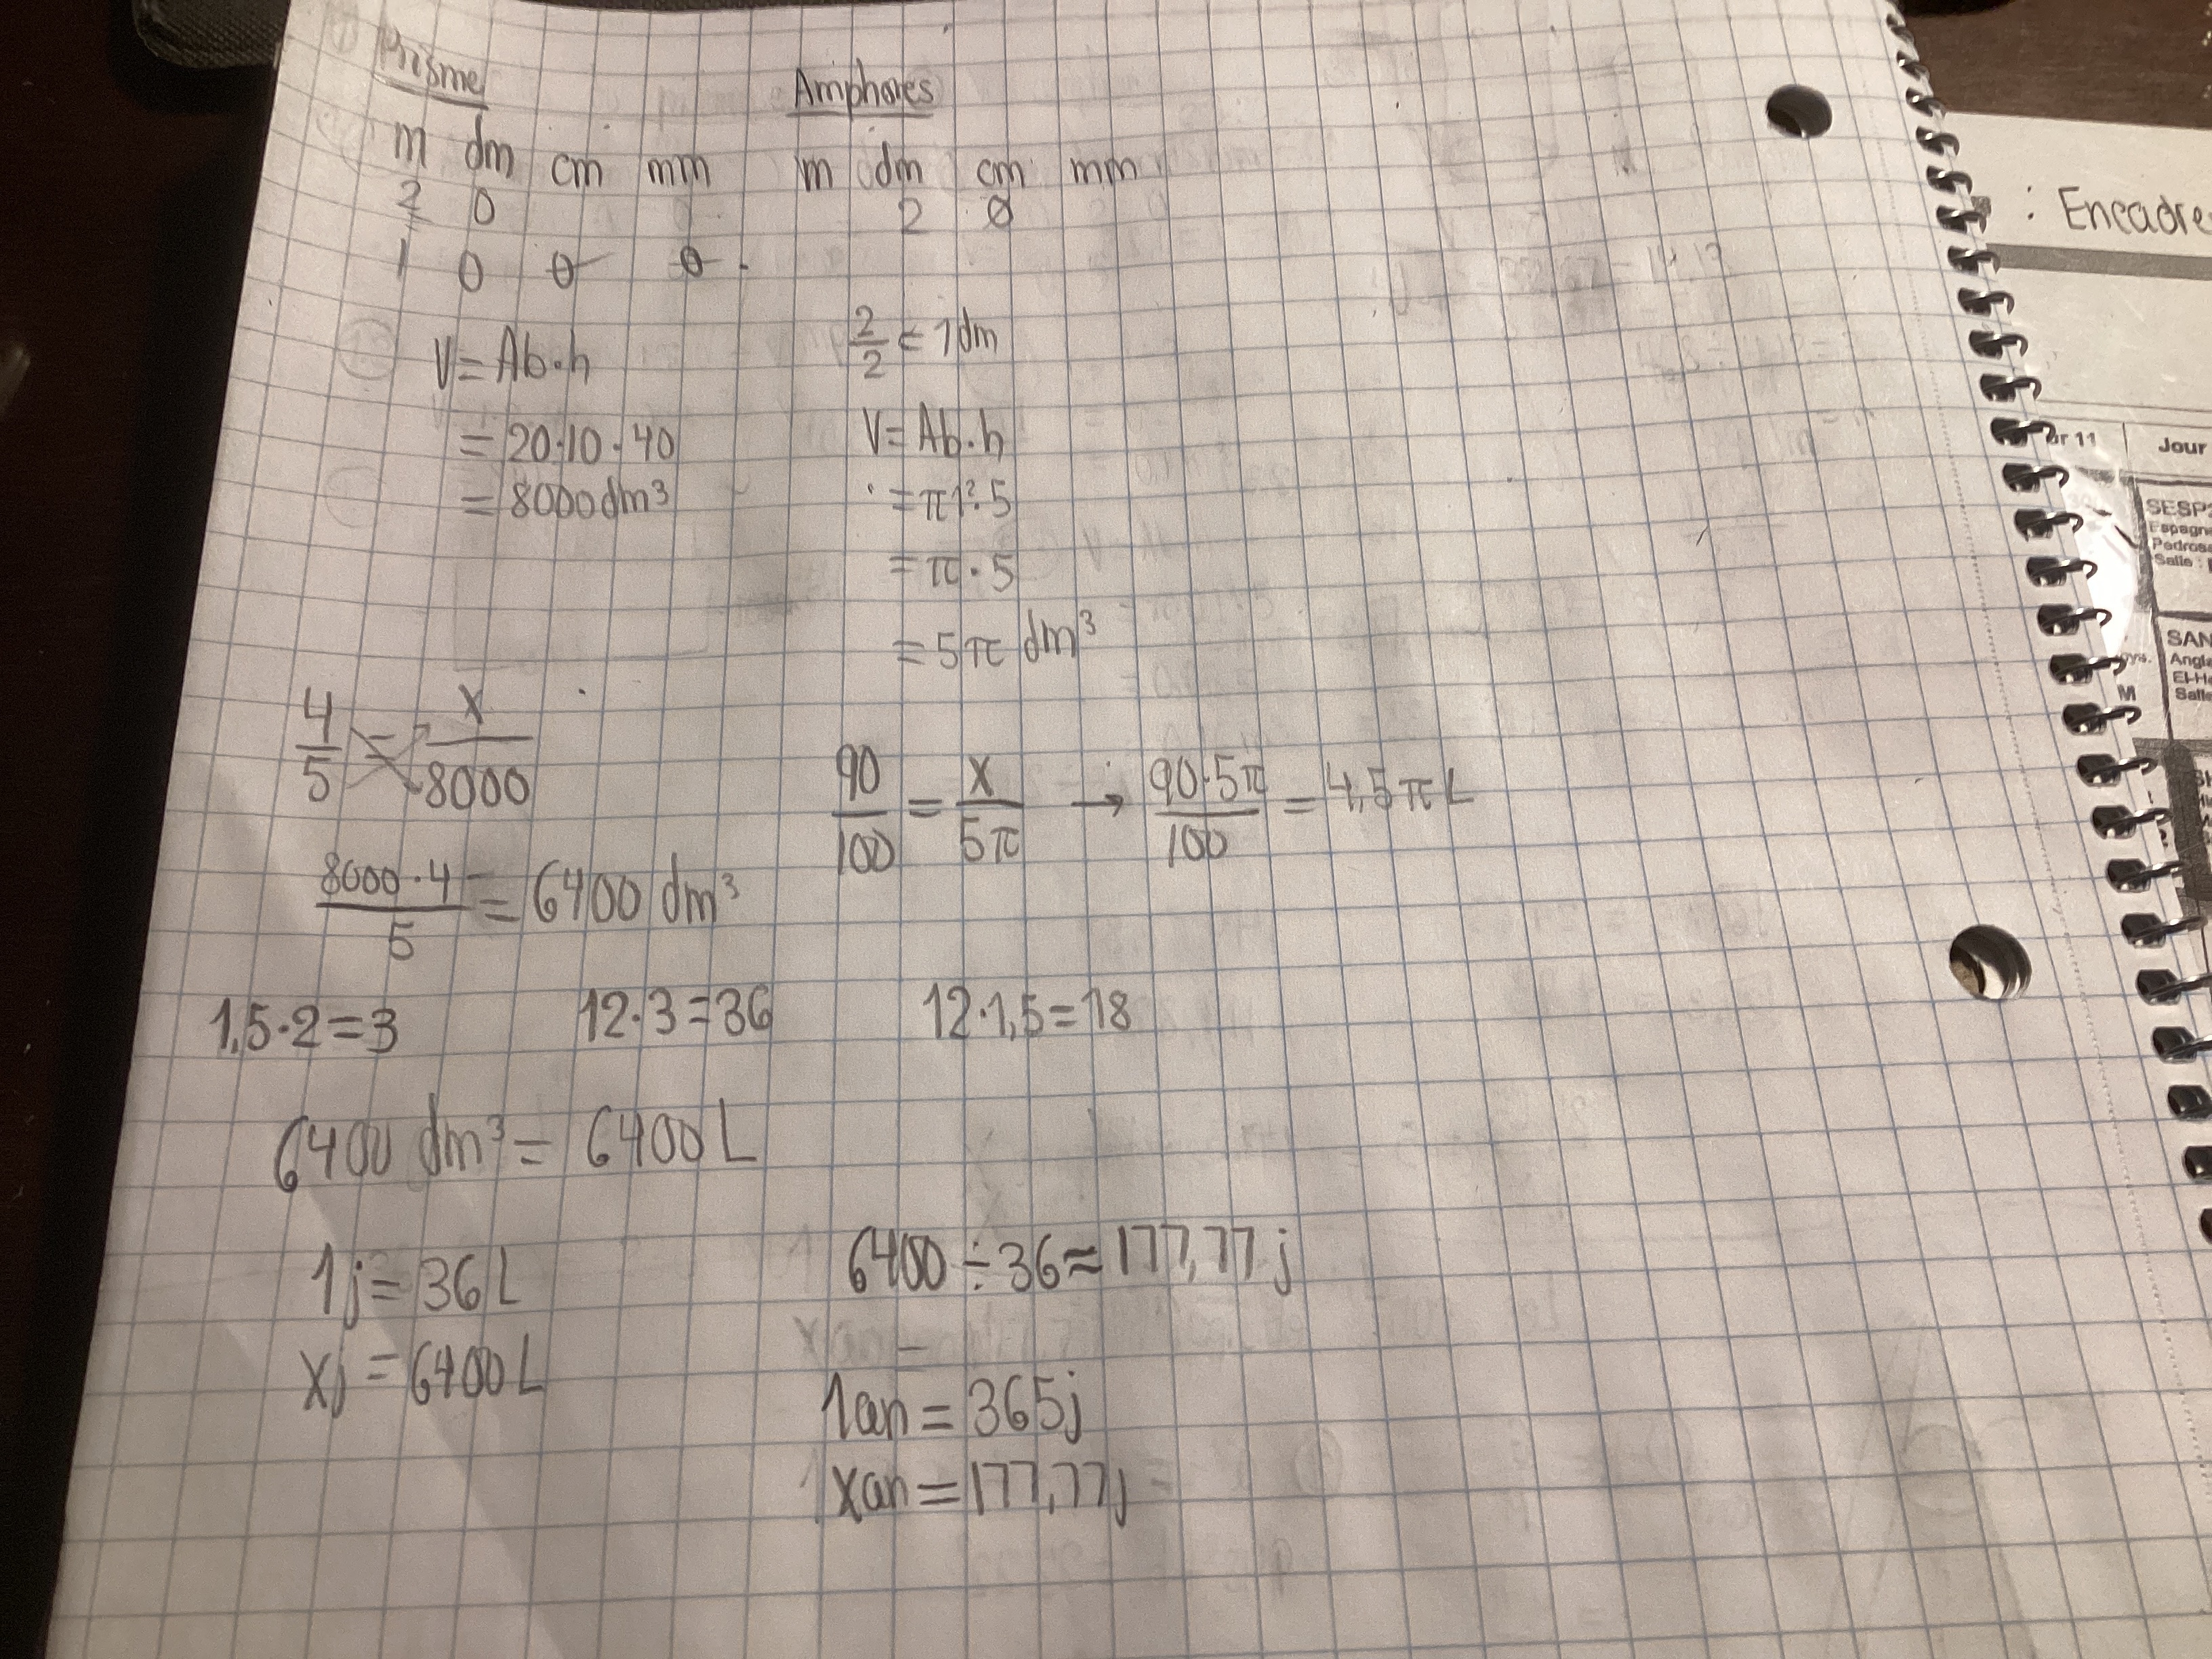 Prisme
m dm cm mm
2 0
1 0 0 0
V = Ab·h
= 20·10·40
= 8000 dm³
Amphores
m dm cm mm
2 0
2/2 = 1 dm
V = Ab·h
= π1²·5
= π·5
= 5π dm³
4/5 = x/8000
8000·4/5 = 6400 dm³
90/100 = x/5π → 90·5π/100 = 4,5π L
1,5·2=3 12·3=36 12·1,5=18
6400 dm³ = 6400 L
1j = 36 L
xj = 6400 L
6400 ÷ 36 ≈ 177,77 j
1an = 365j
xan = 177,77j
: Encadre
11
Jour
SESP2
Espagn
Pedros
Salle :
SAN
Angla
El-H
Salle
M